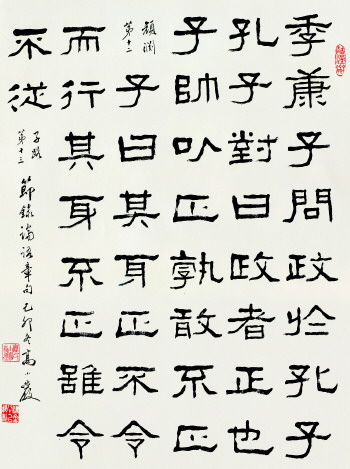 季康子問政於孔子
孔子對曰政者正也
子帥以正孰敢不正
顏淵
第十二
子曰其身正不令
而行其身不正雖令
不從
子路
第十三
節錄論語章句己卯冬高小